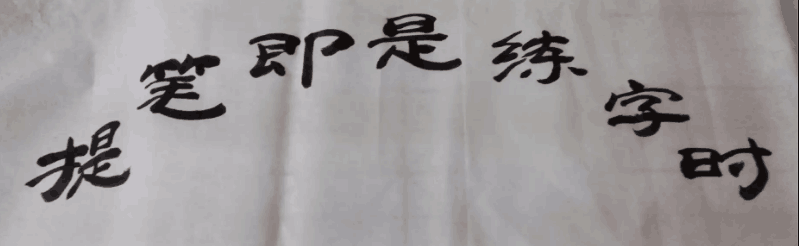 提笔即是练字时